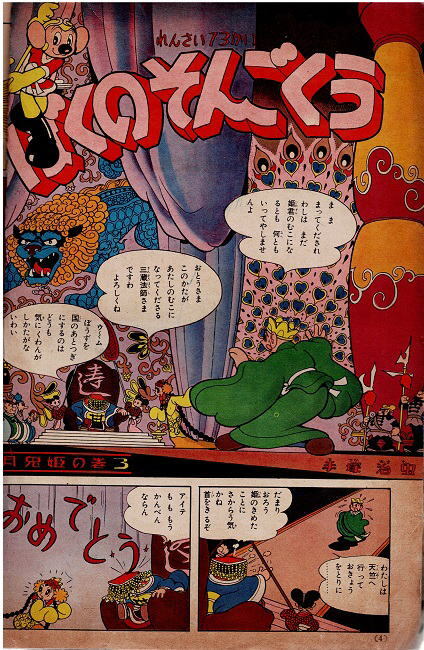 れんさい73かい
ぼくのそんごくう
ま ま
まってくだされ
わしは まだ
姫君のむこにな
るとも 何とも
いってやしませ
んよ
おとうさま
このかたが
あたしのむこに
なってくださる
三蔵法師さま
ですわ
よろしくね
ウーム
ぼうずを
国のあとつぎ
にするのは
どうも
気にくわんが
しかたがな
いわい
月兎姫の巻3
手塚治虫
だまり
おろう
姫のきめた
ことに
さからう気
かね
首をきるぞ
わたしは
天竺へ
行って
おきょう
をとりに
……
アイテ
ももう
かんべん
ならん
おめでとう
(4)